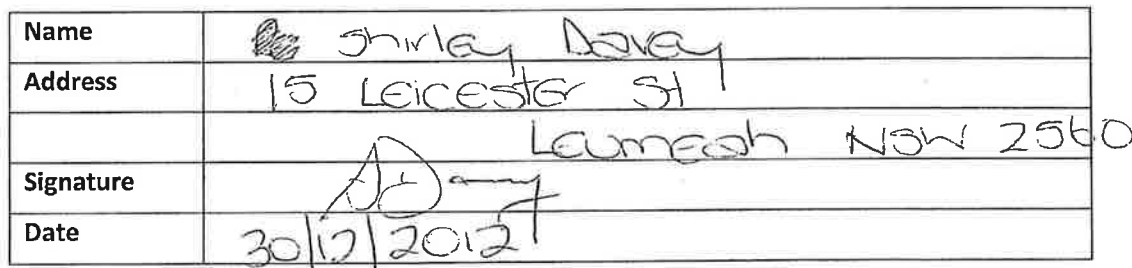 Name Shirley Davey
Address 15 Leicester St
Leumeah NSW 2560
Signature SDavey
Date 30/12/2012